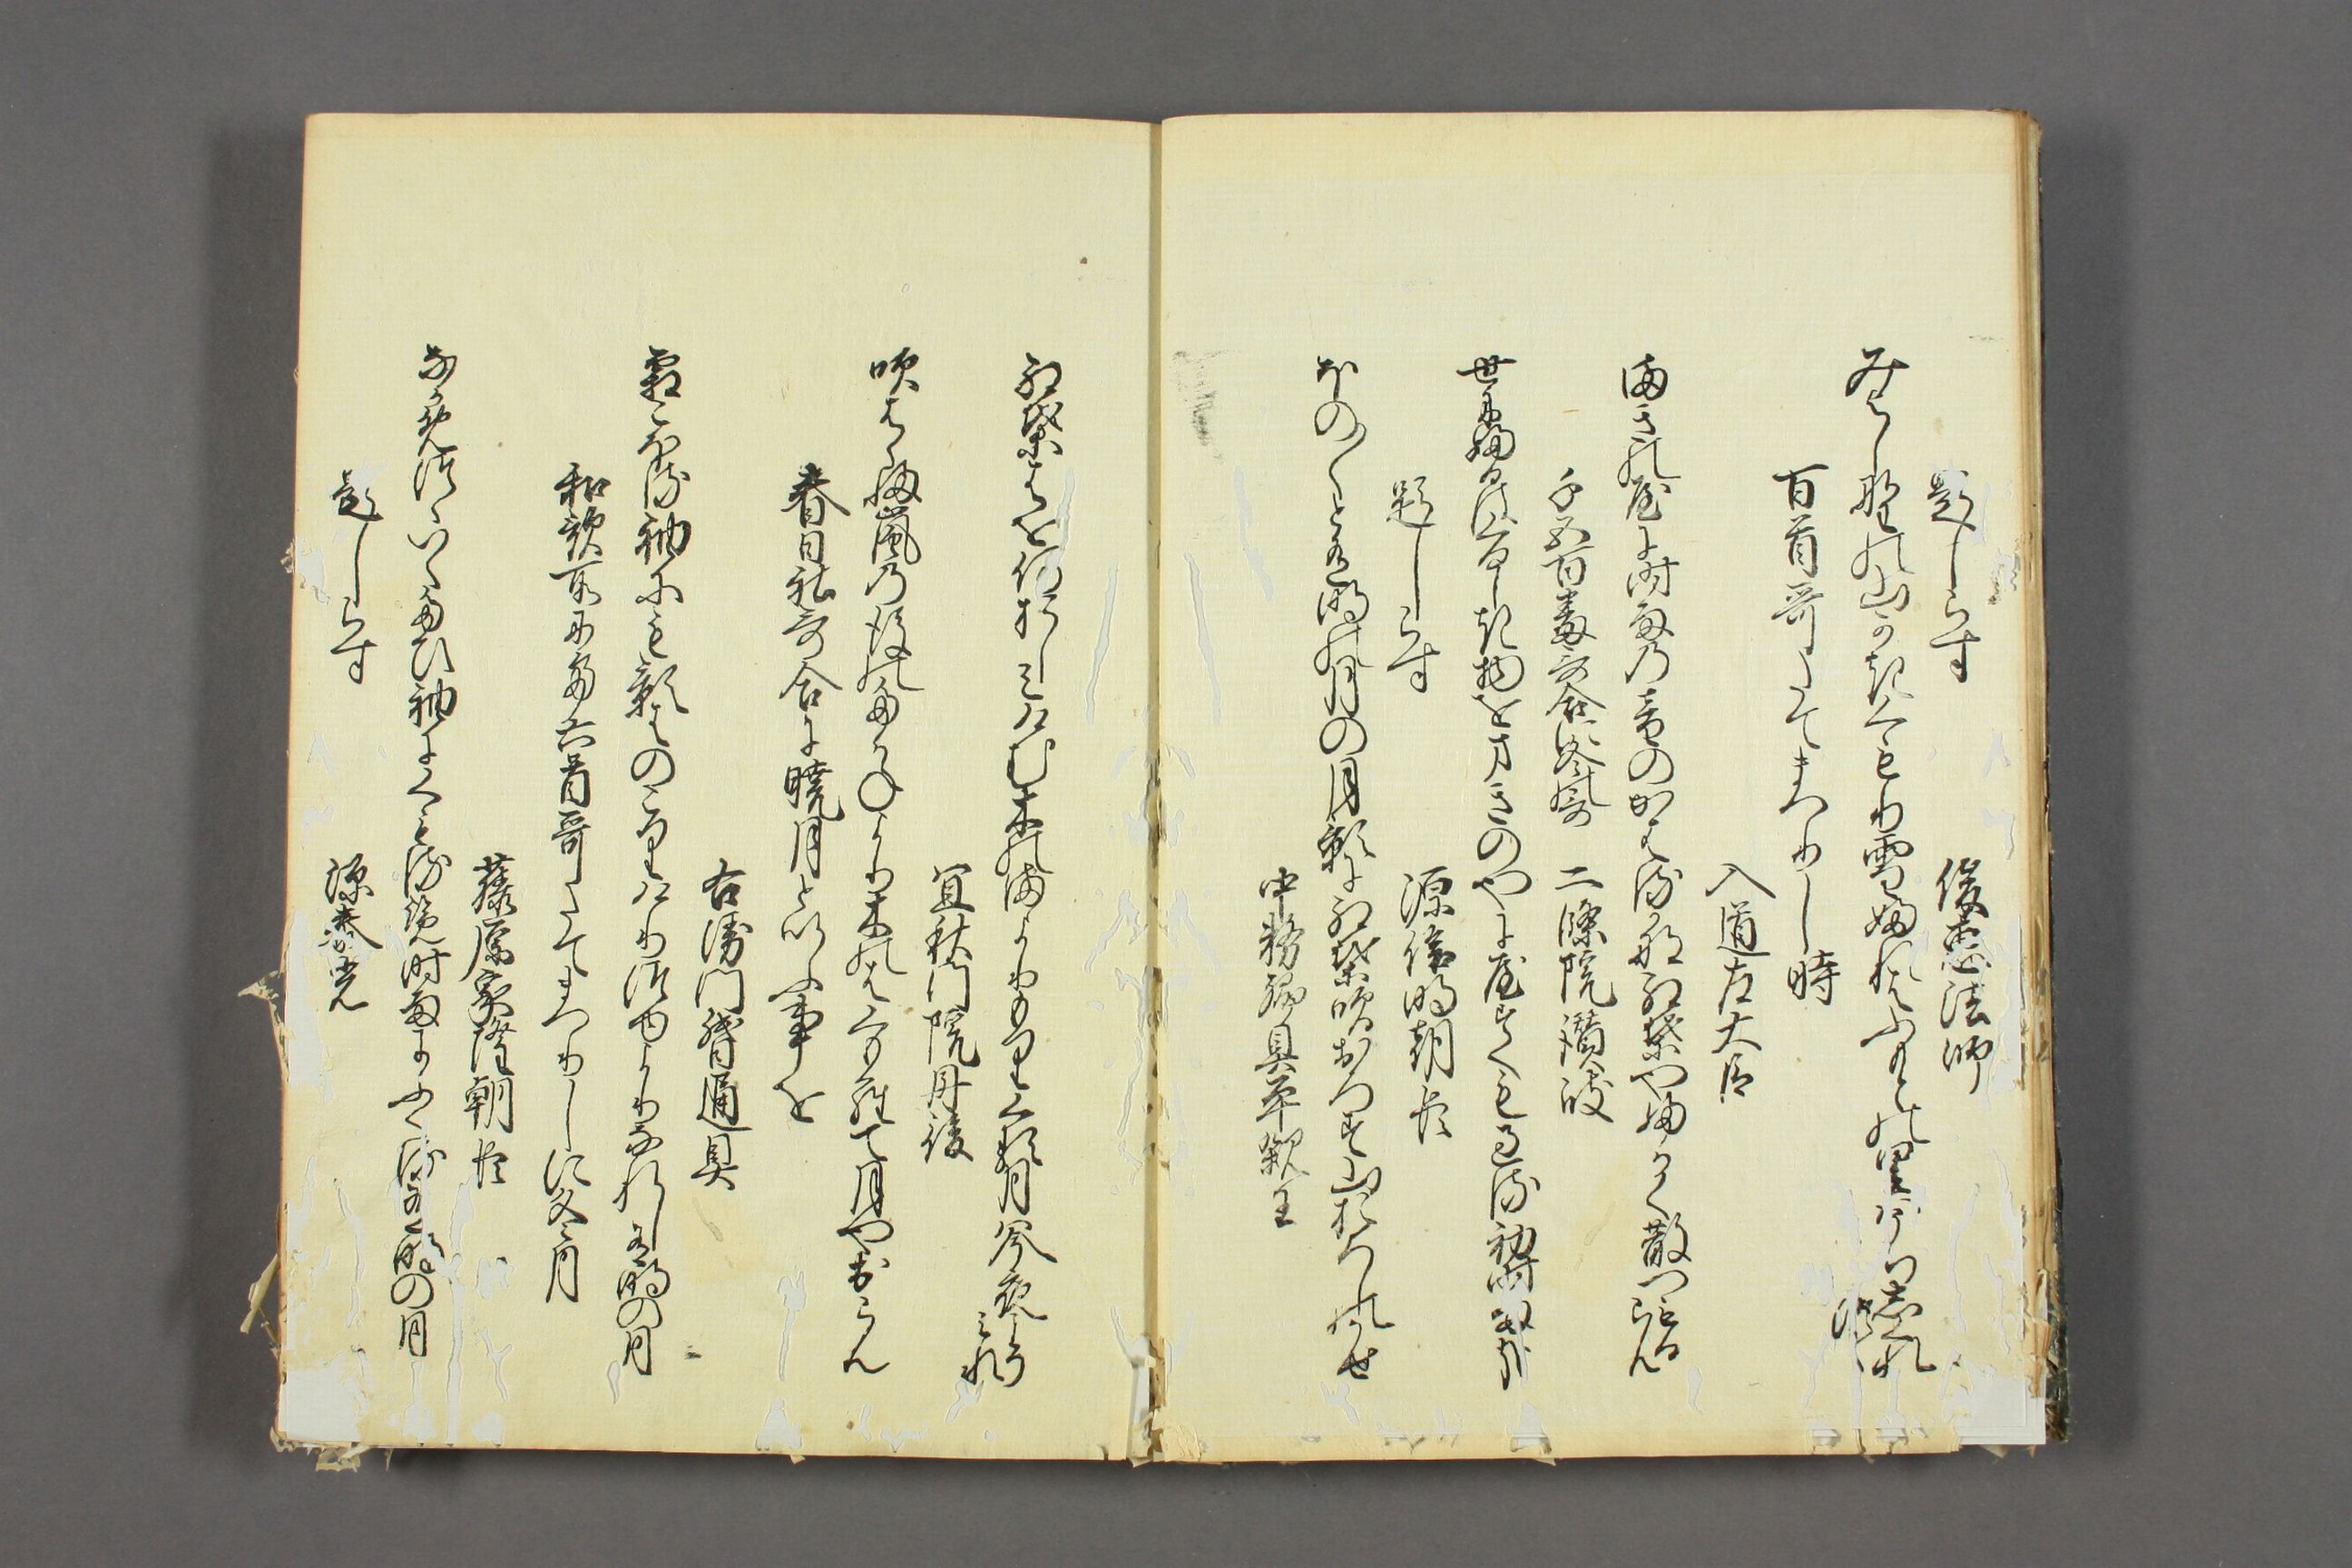 題しらす　俊恵法師
みよし野の山かきくもり雪ふれはふもとの里はうちしくれつゝ
百首哥たてまつりし時
入道左大臣
まきのやに時雨の音のかはる哉紅葉やふかく散つもるらん
千五百番哥合に冬哥　二條院讃岐
世にふるはくるしき物をまきのやにやすくもすくる初時雨かな
題しらす　源信明朝臣
ほの〱と有明の月の月影に紅葉吹おろす山おろしの風
中務卿具平親王
紅葉はを何おしみけむ木のまよりもりくる月は今夜こそみれ
宜秋門院丹後
吹はらふ嵐の後のたかねより木のはくもらて月や出らん
春日社哥合に暁月といふ事を
右衛門督通具
霜こほる袖にも影はのこりけり露よりなれし有明の月
和歌所にて六首哥たてまつりしに冬月
藤原家隆朝臣
なかめつゝいくたひ袖にくもるらん時雨にふくる有明の月
題しらす　源泰光